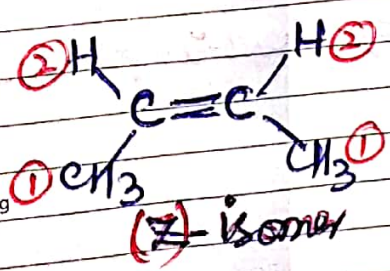 ② H H ②
C = C
① CH3 CH3 ①
(Z)-isomer